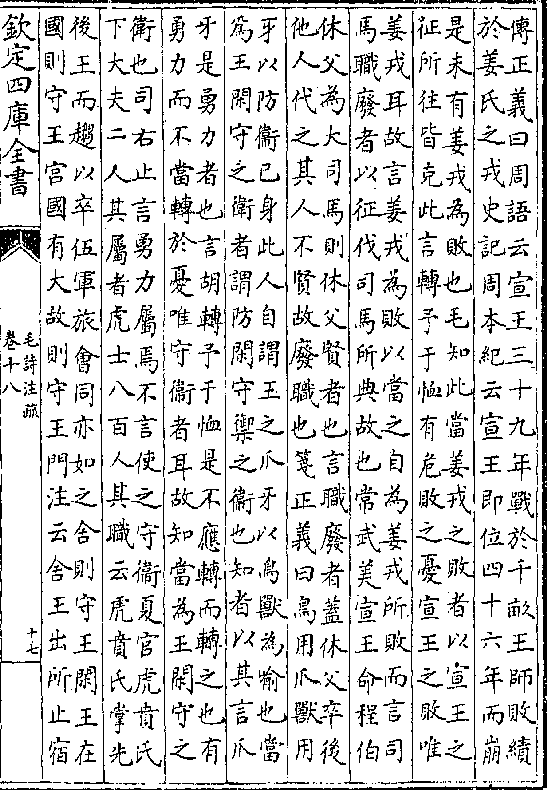 傳正義曰周語云宣王三十九年戰於千畝王師敗績
於姜氏之戎史記周本紀云宣王即位四十六年而崩
是未有姜戎為敗也毛知此當姜戎之敗者以宣王之
征所往皆克此言轉予于恤有危敗之憂宣王之敗唯
姜戎耳故言姜戎為敗以當之自為姜戎所敗而言司
馬職廢者以征伐司馬所典故也常武美宣王命程伯
休父為大司馬則休父賢者也言職廢者蓋休父卒後
他人代之其人不賢故廢職也箋正義曰鳥用爪獸用
牙以防衞已身此人自謂王之爪牙以鳥獸為喻也當
為王閑守之衛者謂防閑守禦之衛也知者以其言爪
牙是勇力者也言胡轉予于恤是不應轉而轉之也有
勇力而不當轉於憂唯守衛者耳故知當為王閑守之
衛也司右止言勇力屬焉不言使之守衛夏官虎賁氏
下大夫二人其屬者虎士八百人其職云虎賁氏掌先
後王而趨以卒伍軍旅會同亦如之舍則守王閑王在
國則守王宮國有大故則守王門注云舍王出所止宿
欽定四庫全書
毛詩注疏
卷十八
十七